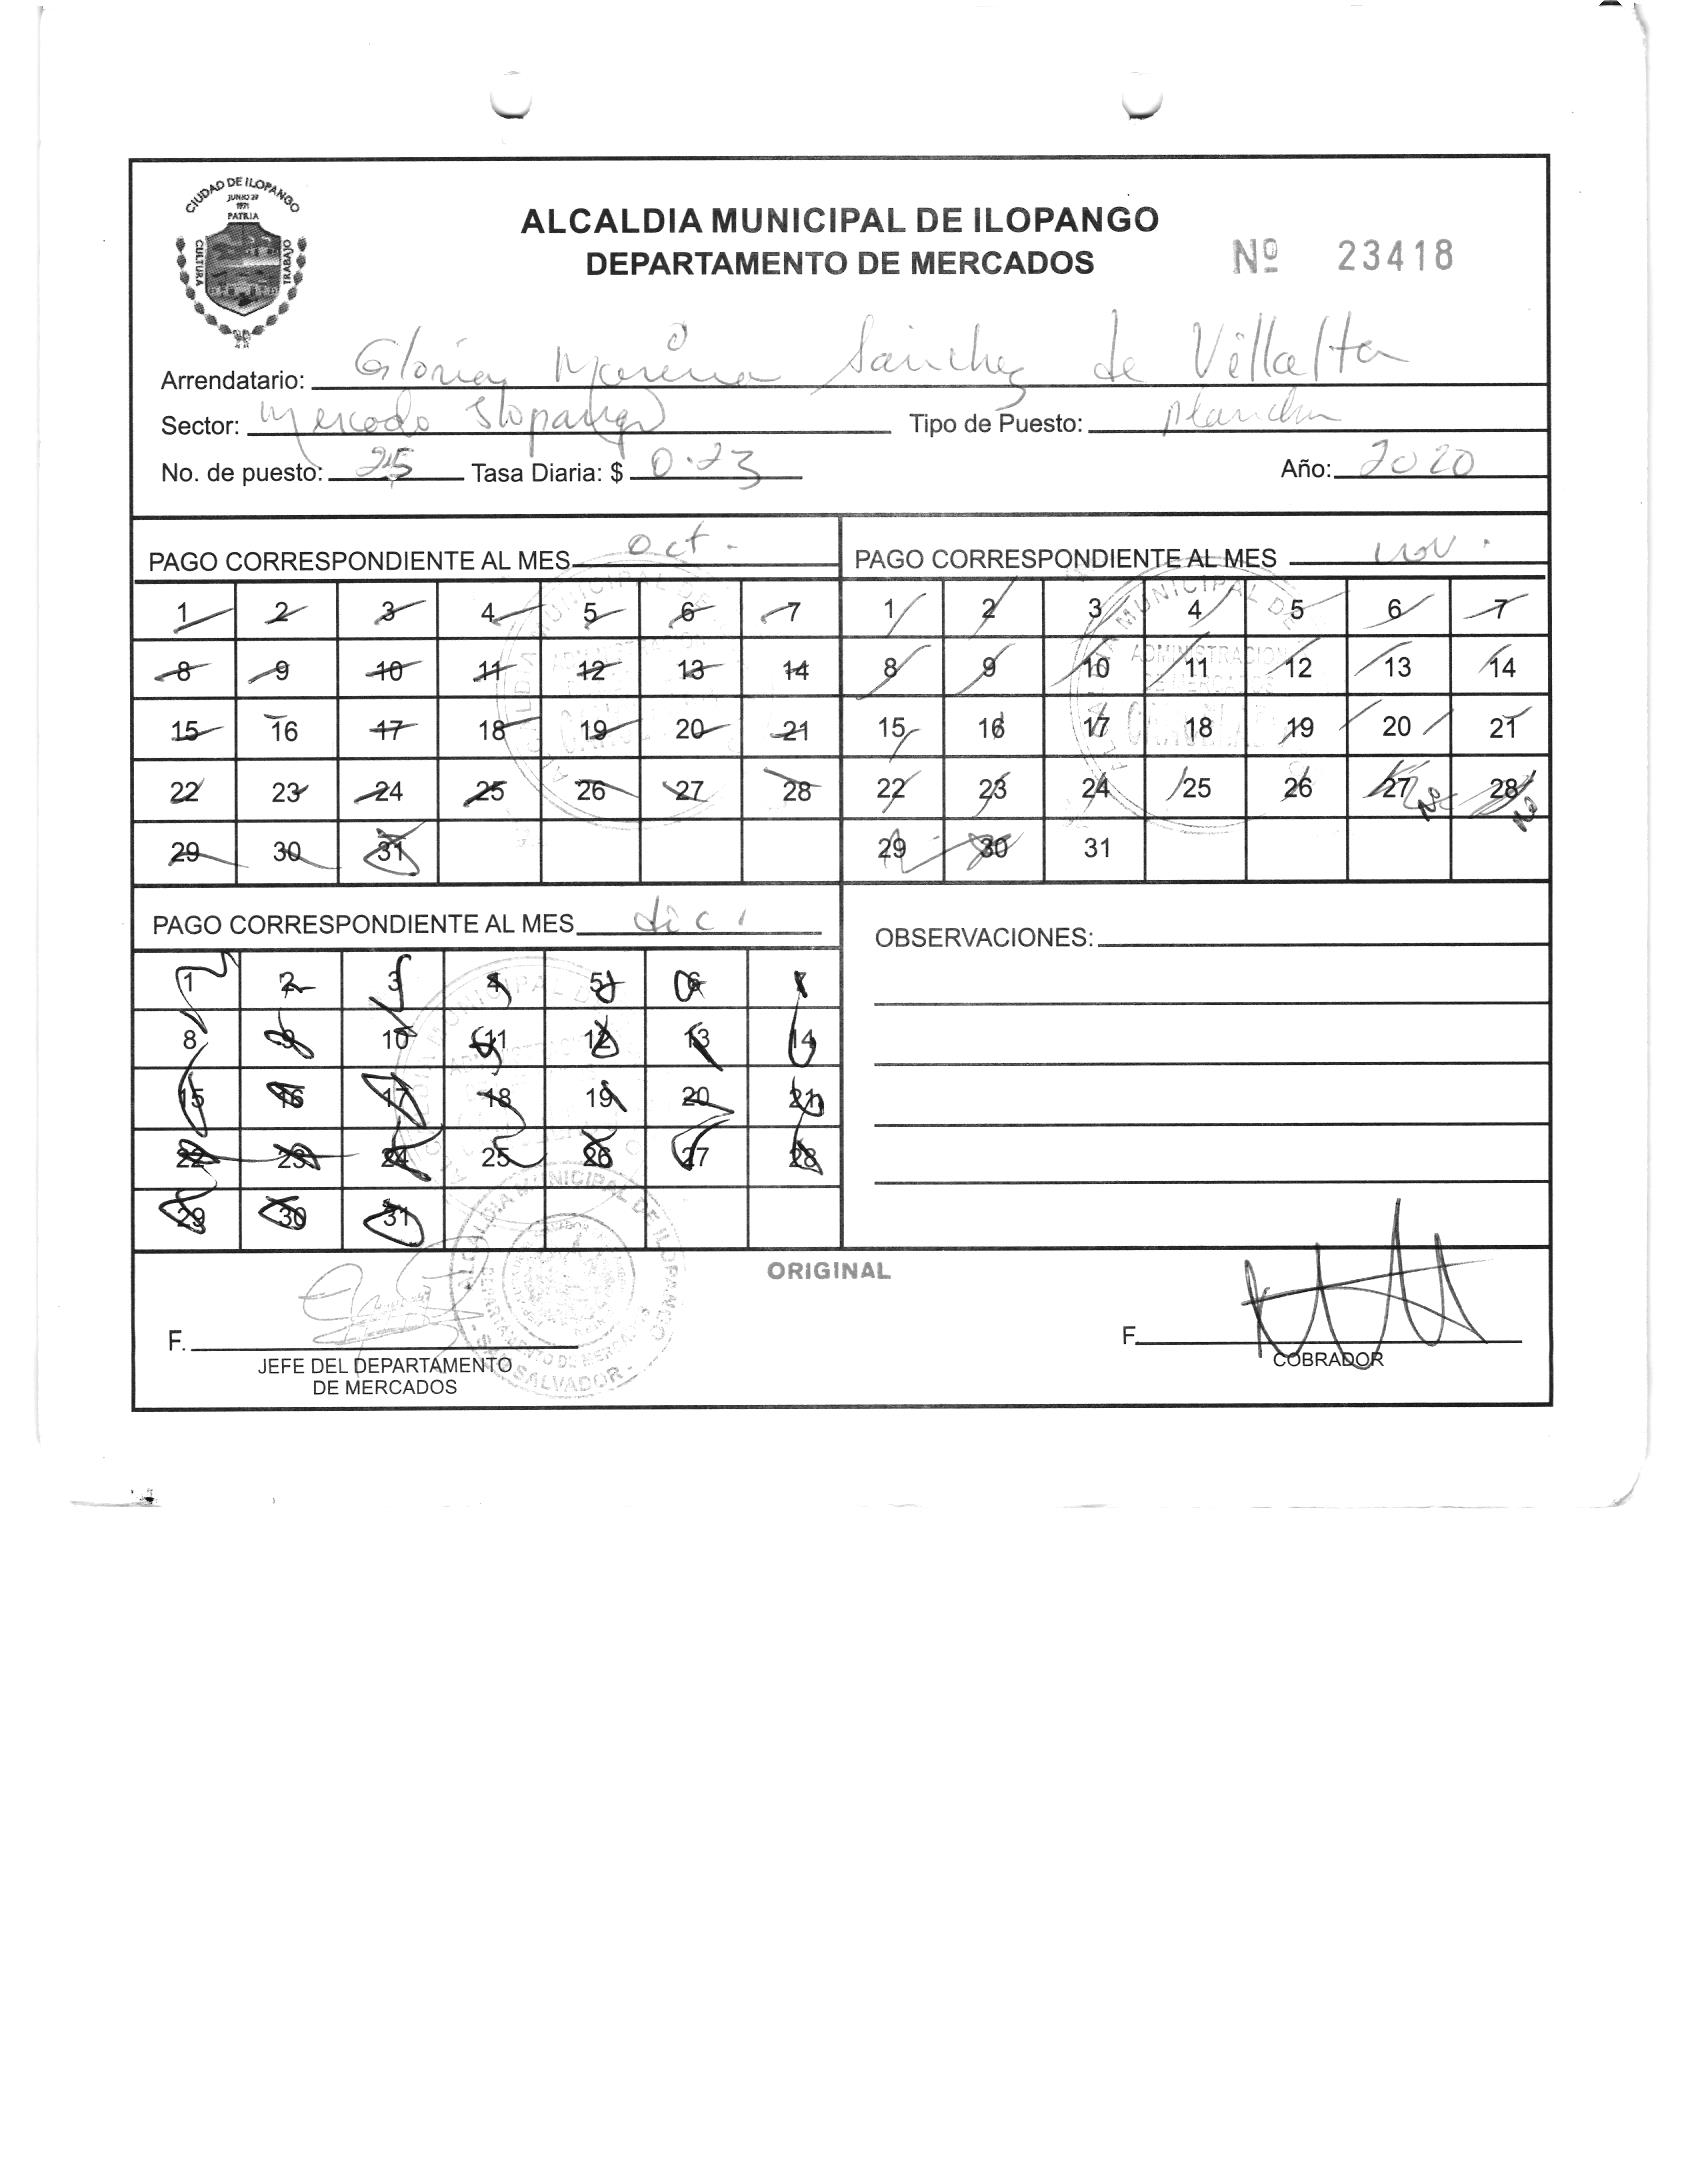 CIUDAD DE ILOPANGO
JUNIO 29
1971
PATRIA
CULTURA
TRABAJO
ALCALDIA MUNICIPAL DE ILOPANGO
DEPARTAMENTO DE MERCADOS
Nº 23418
Arrendatario: Gloria Morena Sanchez de Villalta
Sector: Mercado Ilopango Tipo de Puesto: plancha
No. de puesto: 25 Tasa Diaria: $ 0.23 Año: 2020
PAGO CORRESPONDIENTE AL MES oct.
1 2 3 4 5 6 7
8 9 10 11 12 13 14
15 16 17 18 19 20 21
22 23 24 25 26 27 28
29 30 31
PAGO CORRESPONDIENTE AL MES nov.
1 2 3 4 5 6 7
8 9 10 11 12 13 14
15 16 17 18 19 20 21
22 23 24 25 26 27 28
29 30 31
ADMINISTRACION
DE MERCADOS
PAGO CORRESPONDIENTE AL MES dic.
1 2 3 4 5 6 7
8 9 10 11 12 13 14
15 16 17 18 19 20 21
22 23 24 25 26 27 28
29 30 31
OBSERVACIONES:
ORIGINAL
ALCALDIA MUNICIPAL DE ILOPANGO
DEPARTAMENTO DE MERCADOS
SAN SALVADOR
F.
JEFE DEL DEPARTAMENTO
DE MERCADOS
F.
COBRADOR